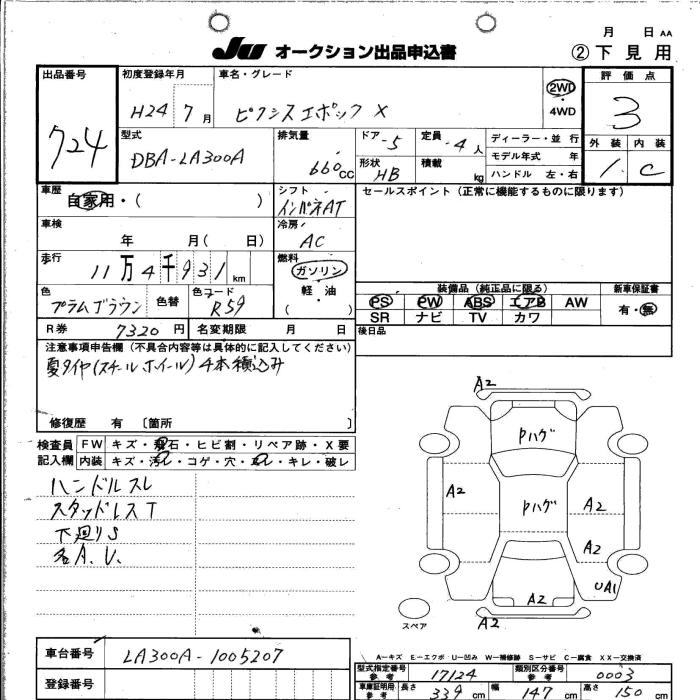 月 日 AA
JU オークション出品申込書
② 下見用
出品番号 初度登録年月 車名・グレード 評価点
724
H24 7月 ピクシスエポック X
2WD・4WD
3
型式 排気量 ドア 定員 ディーラー・並行 外装 内装
DBA-LA300A 660CC -5 -4人
形状 HB 積載 kg
モデル年式 年
ハンドル 左・右
1 C
車歴 シフト セールスポイント(正常に機能するものに限ります)
自家用・( )
インパネAT
車検 冷房
年 月( 日)
AC
走行 燃料
11万4千931km
ガソリン
軽・油
( )
色 色替 色コード
プラムブラウン R59
装備品(純正品に限る) 新車保証書
PS PW ABS エアB AW 有・無
SR ナビ TV カワ
R券 7320円 名変期限 月 日
後日品
注意事項申告欄(不具合内容等は具体的に記入してください)
夏タイヤ(スチールホイール)4本積込み
修復歴 有 〔箇所 〕
検査員記入欄
FW キズ・飛石・ヒビ割・リペア跡・X要
内装 キズ・汚レ・コゲ・穴・スレ・キレ・破レ
ハンドルスレ
スタッドレスT
下廻りS
各A.U.
A2
Pハゲ
Pハゲ
A2
A2
A2
UA1
A2
A2
スペア
A…キズ E…エクボ U…凹み W…補修跡 S…サビ C…腐食 XX…交換済
車台番号 LA300A-1005207
登録番号
型式指定番号 参考 17124 類別区分番号 参考 0003
車庫証明用 参考 長さ 339cm 幅 147cm 高さ 150cm